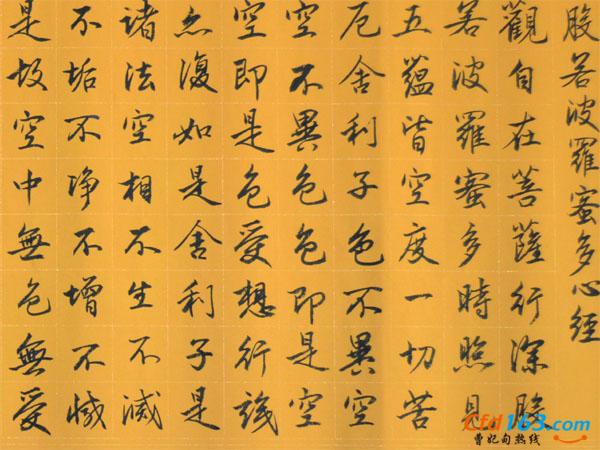 般若波羅蜜多心經
觀自在菩薩行深般
若波羅蜜多時照見
五蘊皆空度一切苦
厄舍利子色不異空
空不異色色即是空
空即是色受想行識
亦復如是舍利子是
諸法空相不生不滅
不垢不淨不增不減
是故空中無色無受
Cfd163.com
曹妃甸热线